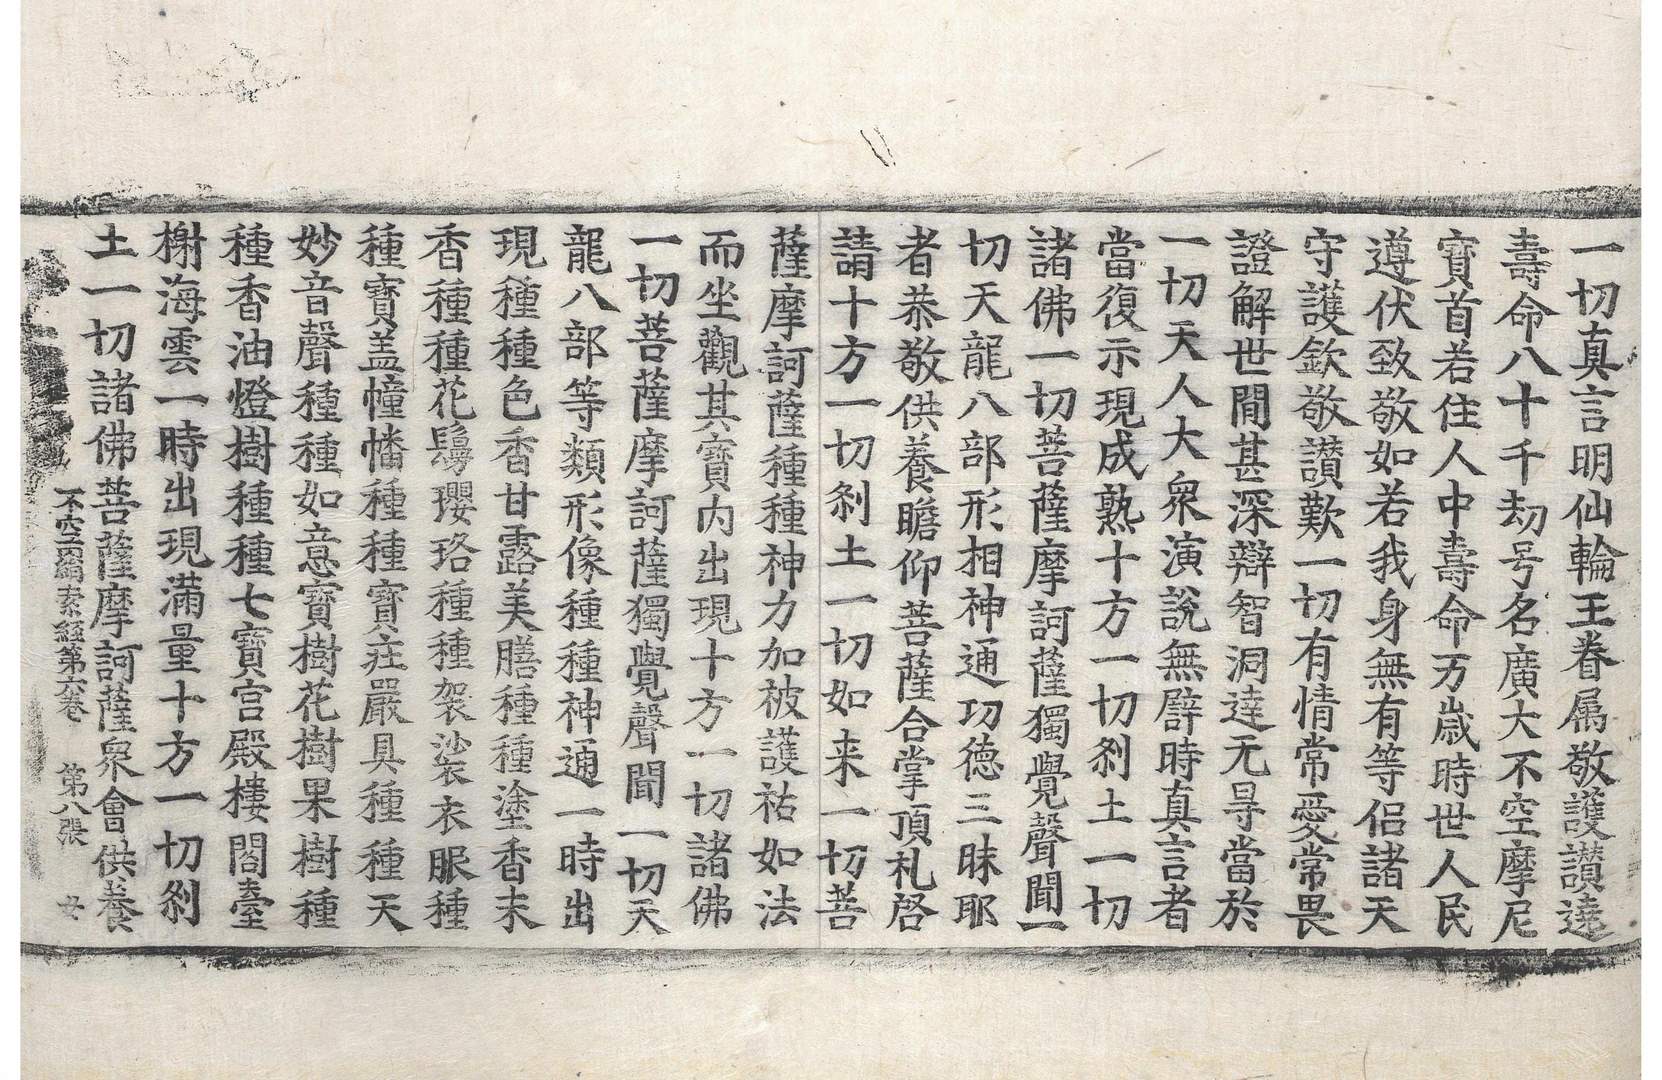 一切真言明仙輪王眷属敬護讃達
壽命八十千劫号名廣大不空摩尼
寶首若住人中壽命万歲時世人民
遵伏致敬如若我身無有等侶諸天
守護欽敬讃歎一切有情常愛常畏
證解世間甚深辯智洞達无㝵當於
一切天人大衆演說無辟時真言者
當復示現成熟十方一切刹土一切
諸佛一切菩薩摩訶薩獨覺聲聞一
切天龍八部形相神通功德三昧耶
者恭敬供養瞻仰菩薩合掌頂札啓
請十方一切刹土一切如来一切菩
薩摩訶薩種種神力加被護祐如法
而坐觀其寶内出現十方一切諸佛
一切菩薩摩訶薩獨覺聲聞一切天
龍八部等類形像種種神通一時出
現種種色香甘露美膳種種塗香末
香種種花鬘瓔珞種種袈裟衣服種
種寶盖幢幡種種寶莊嚴具種種天
妙音聲種種如意寶樹花樹果樹種
種香油燈樹種種七寶宮殿樓閣臺
榭海雲一時出現滿量十方一切刹
土一切諸佛菩薩摩訶薩衆會供養
不空羂索経第六卷 第八張 女